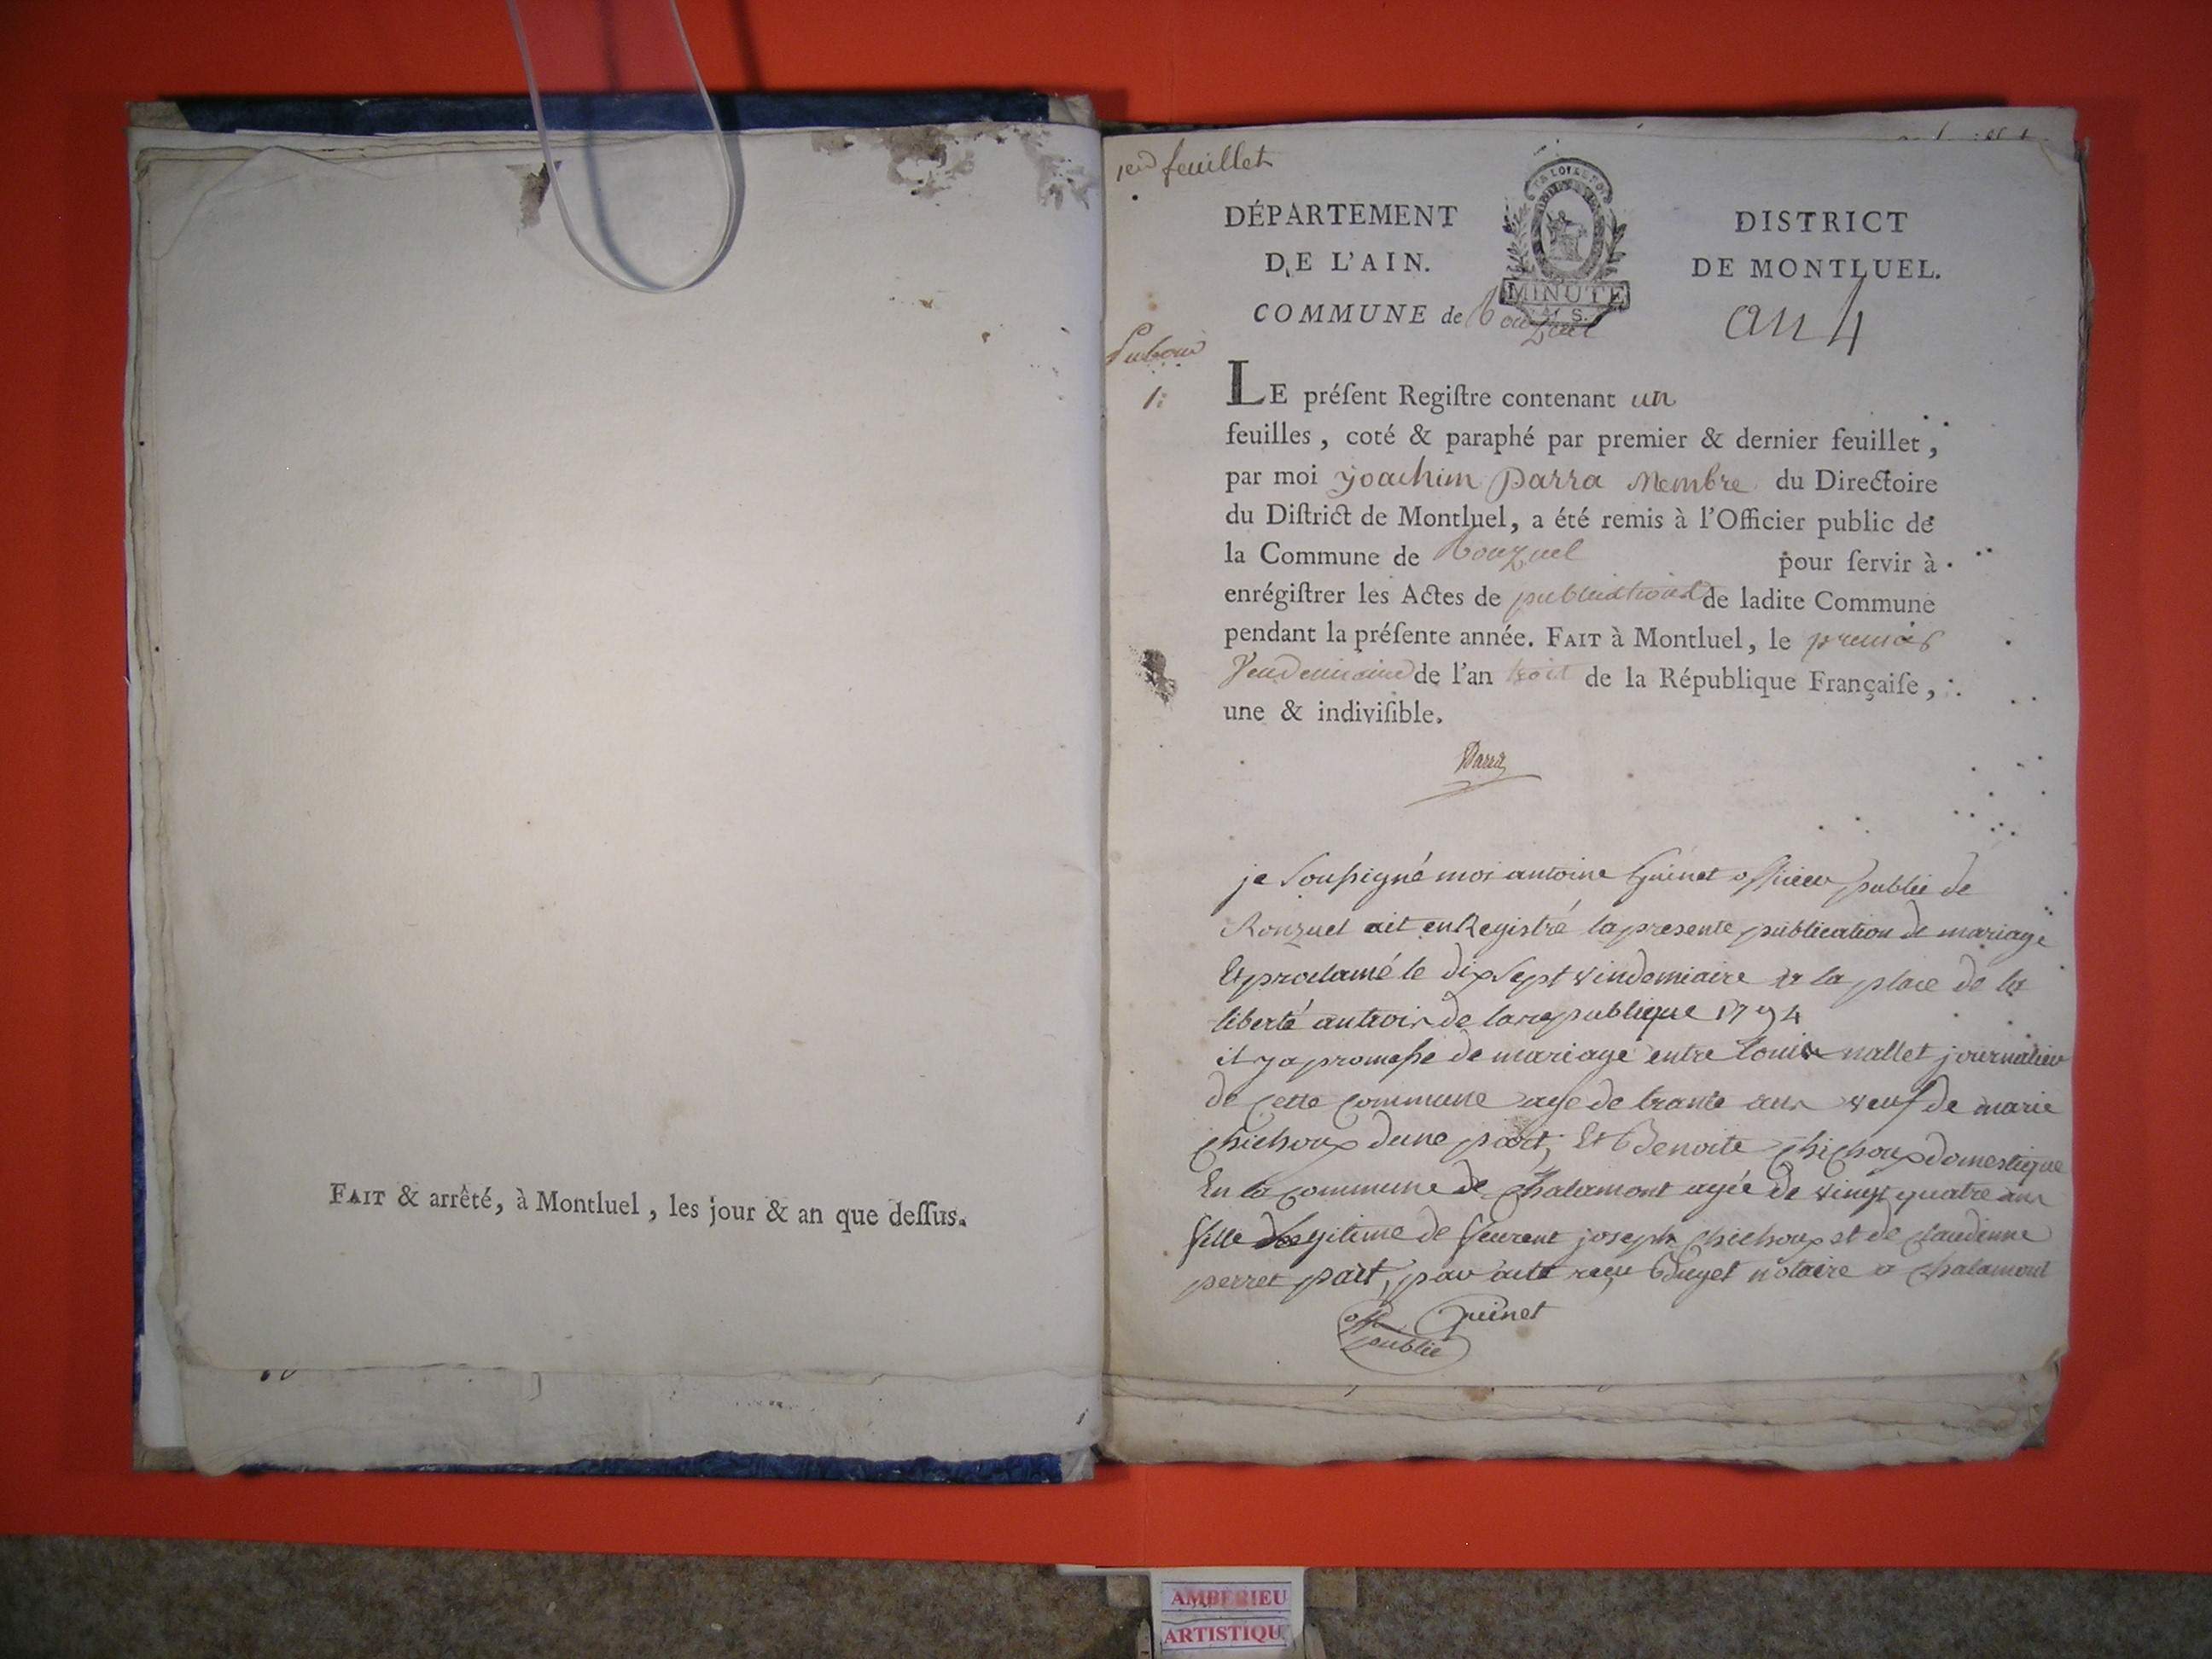 FAIT & arrêté, à Montluel, les jour & an que deſſus.
1er feuillet
DÉPARTEMENT
DE L'AIN.
COMMUNE de Ronzuel
LA LOI & LE ROI
MINUTE
DISTRICT
DE MONTLUEL.
an 4
1:
LE préſent Regiſtre contenant un
feuilles, coté & paraphé par premier & dernier feuillet,
par moi joachim Parra Membre du Directoire
du Diſtrict de Montluel, a été remis à l'Officier public de
la Commune de Ronzuel pour ſervir à
enrégiſtrer les Actes de publications de ladite Commune
pendant la préſente année. FAIT à Montluel, le premier
Vendemiaire de l'an trois de la République Françaiſe,
une & indiviſible.
Parra
je Soussigné moi antoine Guinet officier public de
Ronzuel ait enRegistré la presente publication de mariage
Et proclamé le dix Sept vindemiaire a la place de la
liberté an trois de la republique 1794
il y a promesse de mariage entre Louis nallet journalier
de cette commune age de trante ans veuf de marie
chichoux dune part, Et Benoite chichoux domestique
En la commune de Chalamont agée de vingt quatre ans
fille Legitime de joseph chichoux et de claudinne
perret part, par acte reçu Buget notaire a chalamont
off. Guinet
public
AMBERIEU
ARTISTIQU